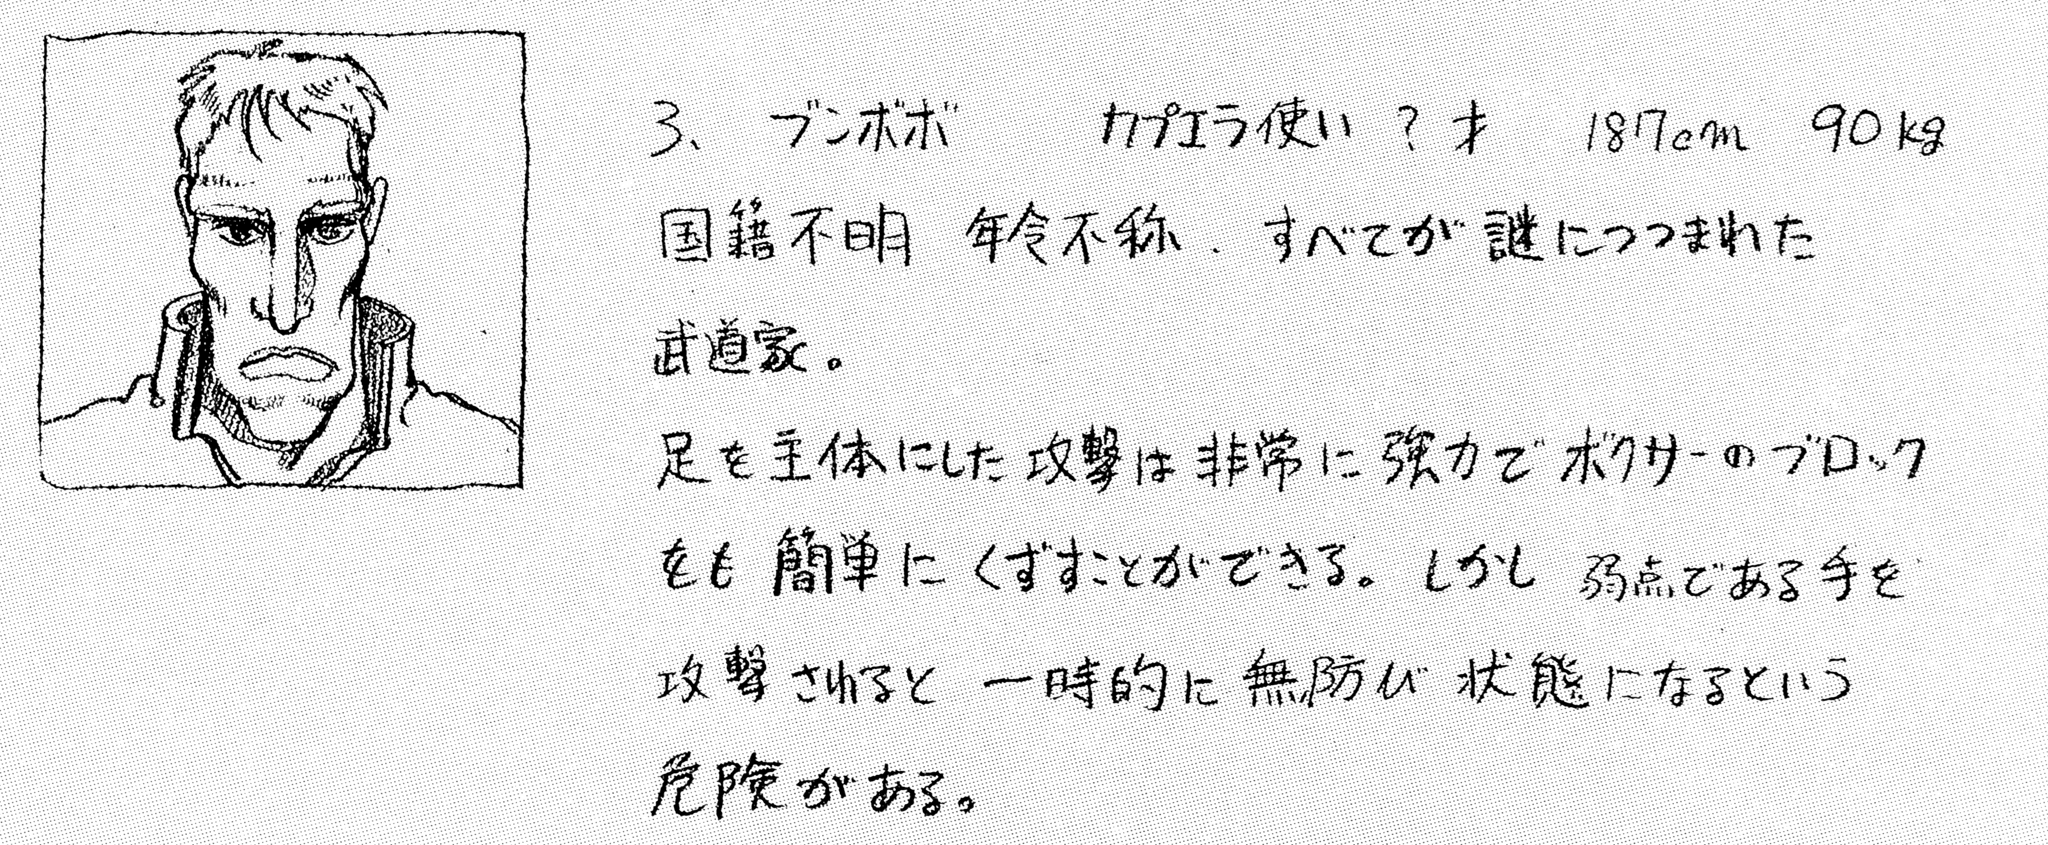 3、 ブンボボ カプエラ使い ? 才 187cm 90kg
国籍不明 年令不称. すべてが謎につつまれた
武道家。
足を主体にした攻撃は非常に強力でボクサーのブロック
をも簡単にくずすことができる。しかし弱点である手を
攻撃されると一時的に無防び状態になるという
危険がある。